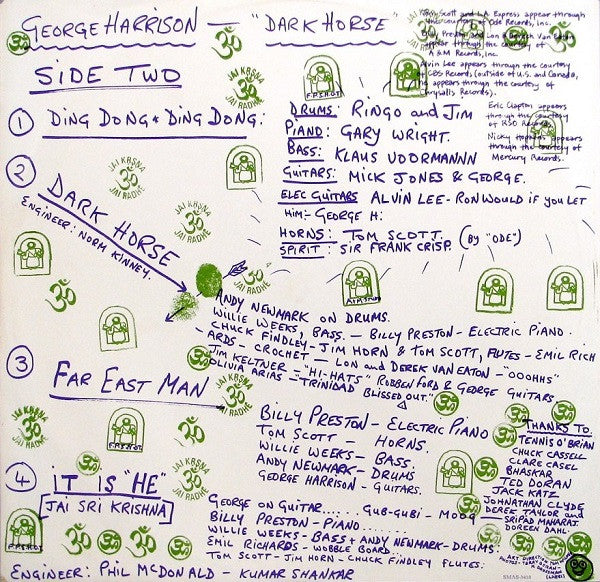 GEORGE HARRISON — "DARK HORSE"
SIDE TWO
Tom Scott and L.A. Express appear through
the courtesy of Ode Records, Inc.
Billy Preston and Lon & Derrek Van Eaton
appear through the courtesy of
A & M Records, Inc.
Alvin Lee appears through the courtesy
of CBS Records (outside of U.S. and Canada,
he appears through the courtesy of
Chrysalis Records).
Eric Clapton appears
through the courtesy
of RSO Records
Nicky Hopkins appears
through the courtesy of
Mercury Records.
① DING DONG * DING DONG:
DRUMS: RINGO and JIM
PIANO: GARY WRIGHT.
BASS: KLAUS VOORMANNN
GUITARS: MICK JONES & GEORGE.
ELEC GUITARS ALVIN LEE - RON WOULD IF YOU LET
HIM:- GEORGE H:
HORNS: TOM SCOTT. (By "ODE")
SPIRIT: SIR FRANK CRISP.
② DARK HORSE
ENGINEER: NORM KINNEY.
ANDY NEWMARK ON DRUMS.
WILLIE WEEKS, BASS. — BILLY PRESTON - ELECTRIC PIANO.
CHUCK FINDLEY - JIM HORN & TOM SCOTT, FLUTES - EMIL RICH
-ARDS - CROCHET — LON and DEREK VAN EATON - "OOOHHS"
JIM KELTNER = "HI-HATS" ROBBEN FORD & GEORGE GUITARS.
OLIVIA ARIAS - "TRINIDAD BLISSED OUT."
③ FAR EAST MAN
BILLY PRESTON - ELECTRIC PIANO
TOM SCOTT - HORNS.
WILLIE WEEKS - BASS.
ANDY NEWMARK - DRUMS
GEORGE HARRISON - GUITARS.
④ iT IS "HE"
[JAI SRI KRISHNA]
GEORGE ON GUITAR...... GUB-GUBI - MOOG
BILLY PRESTON - PIANO........
WILLIE WEEKS - BASS + ANDY NEWMARK - DRUMS.
EMIL RICHARDS - WOBBLE BOARD
TOM SCOTT - JIM HORN - CHUCK FINDLEY FLUTES.
ENGINEER: PHIL MCDONALD - KUMAR SHANKAR
THANKS TO.
TENNIS O'BRIAN
CHUCK CASSELL
CLARE CASEL
BHASKAR
TED DORAN
JACK KATZ
JOHNATHAN CLYDE
DEREK TAYLOR and
SRIPAD MAHARAJ.
DOREEN DAHL.
JAI KRSNA
ॐ
JAI RADHE
F.P.S.H.O.T.
SMAS-3418